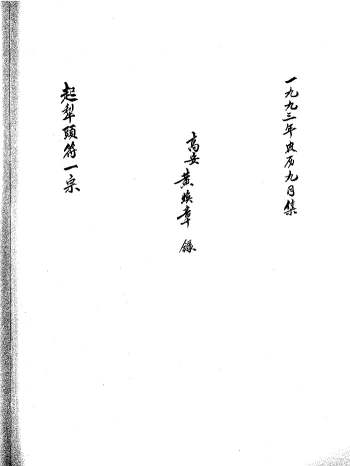 一九九三年农历九月集
高安 黄焕章 录
起犁頭符一宗